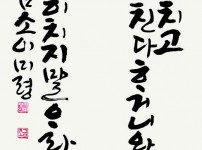 치고친다ᄒᆞ거니와
치지말으라
소이미령